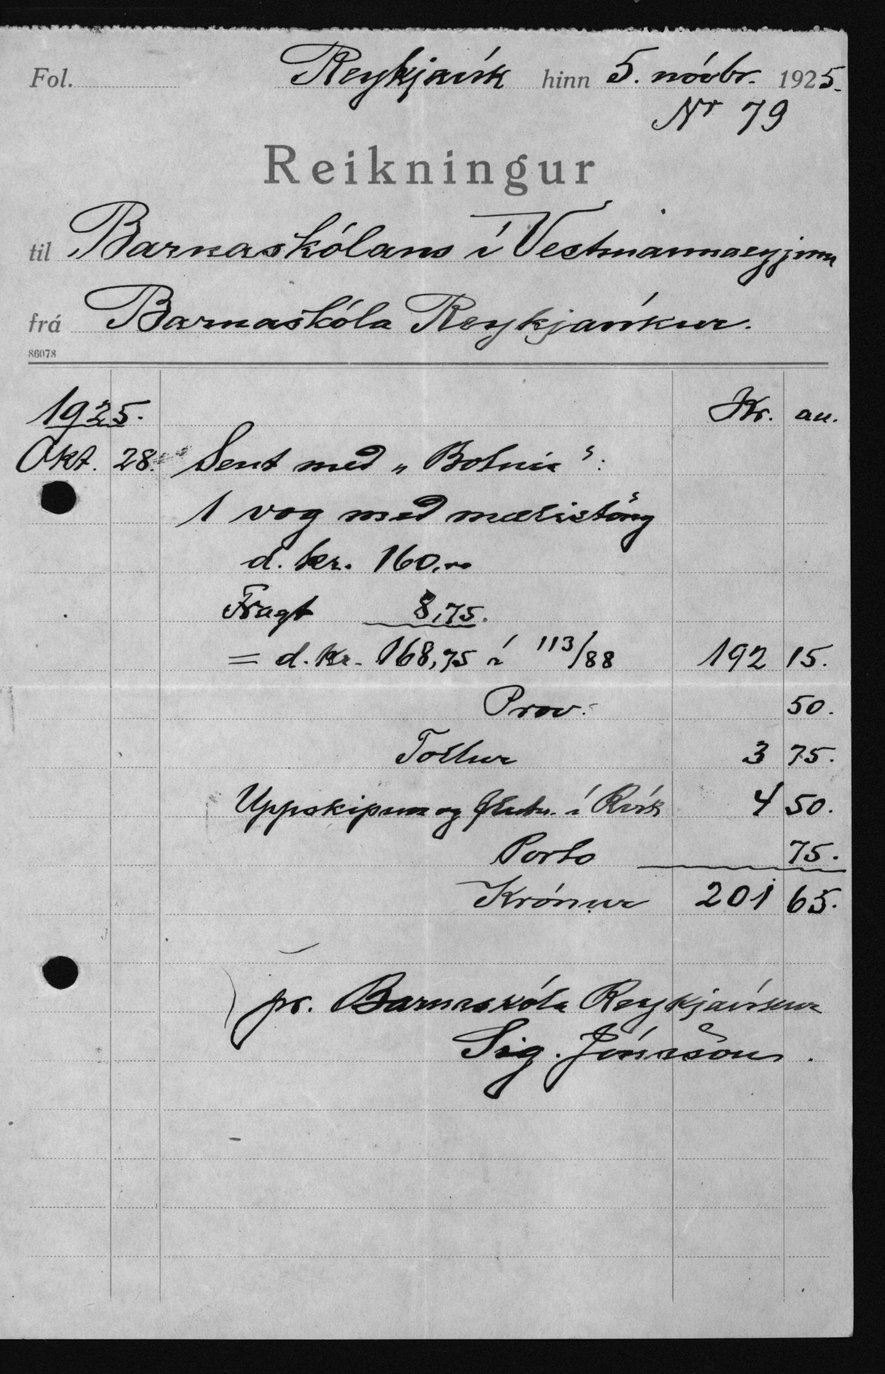 Fol. Reykjavík hinn 5. nóvbr. 1925.
Nr 79
Reikningur
til Barnaskólans í Vestmannaeyjum
frá Barnaskóla Reykjavíkur.
86078
1925. Kr. au.
Okt. 28. Sent með „Botnia“:
1 vog með mælistöng
d. kr. 160,00
Fragt 8,75.
= d. kr. 168,75 á 113/88 192 15.
Prov: 50.
Tollur 3 75.
Uppskipun og flutn. í Rvík 4 50.
Porto 75.
Krónur 201 65.
pr. Barnaskóla Reykjavíkur
Sig. Jónsson.